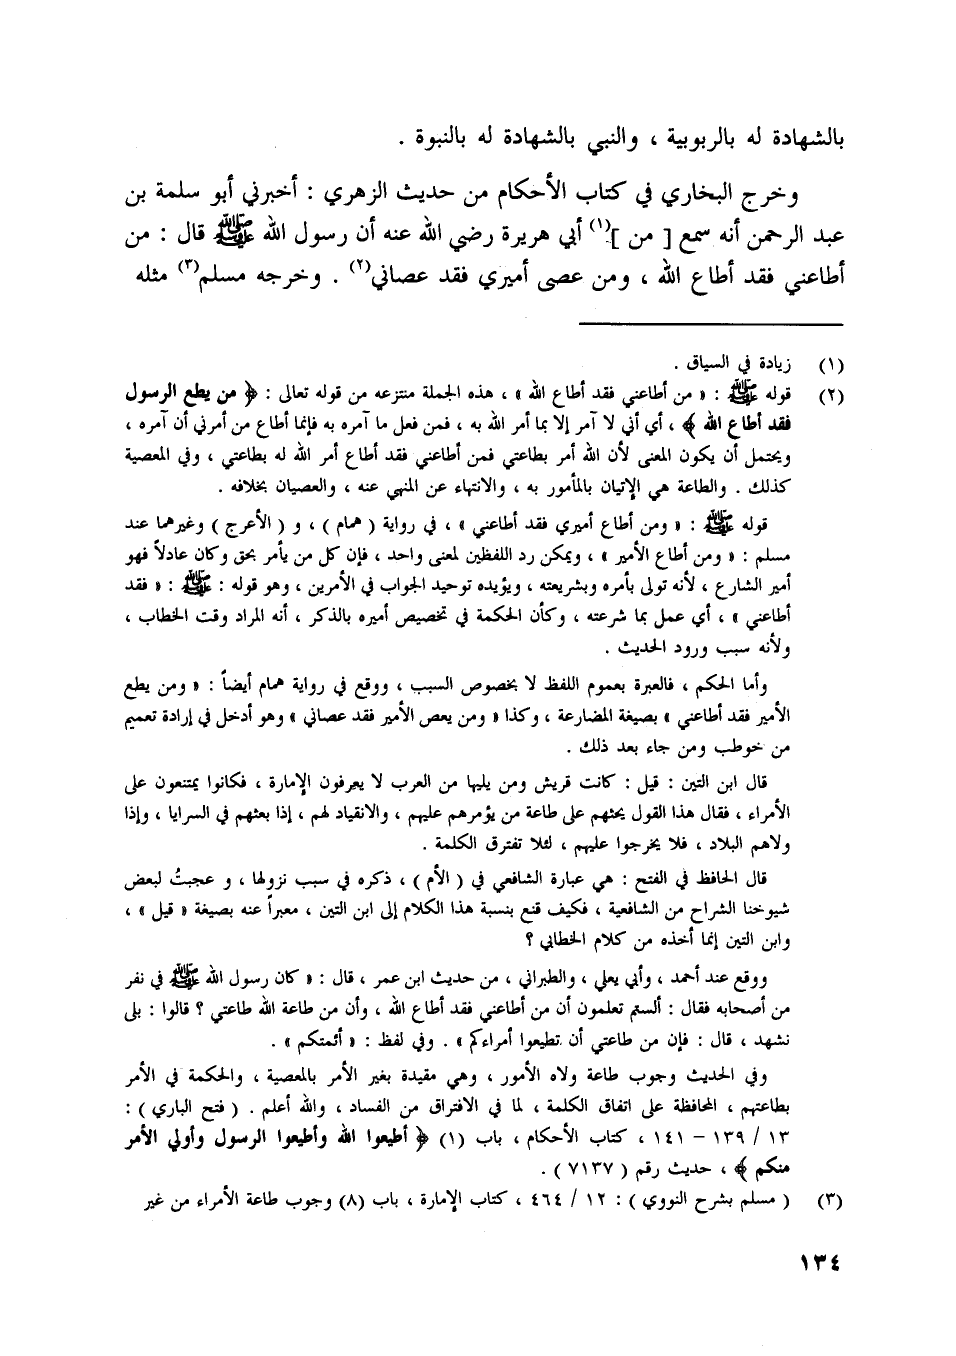 بالشهادة له بالربوبية ، والنبي بالشهادة له بالنبوة .
وخرج البخاري في كتاب الأحكام من حديث الزهري : أخبرني أبو سلمة بن
عبد الرحمن أنه سمع [ من ](١) أبي هريرة رضي الله عنه أن رسول الله ﷺ قال : من
أطاعني فقد أطاع الله ، ومن عصى أميري فقد عصاني(٢) . وخرجه مسلم(٣) مثله
(١) زيادة في السياق .
(٢) قوله ﷺ : « من أطاعني فقد أطاع الله » ، هذه الجملة منتزعه من قوله تعالى : ﴿ من يطع الرسول
فقد أطاع الله ﴾ ، أي أني لا آمر إلا بما أمر الله به ، فمن فعل ما آمره به فإنما أطاع من أمرني أن آمره ،
ويحتمل أن يكون المعنى لأن الله أمر بطاعتي فمن أطاعني فقد أطاع أمر الله له بطاعتي ، وفي المعصية
كذلك . والطاعة هي الإتيان بالمأمور به ، والانتهاء عن المنهي عنه ، والعصيان بخلافه .
قوله ﷺ : « ومن أطاع أميري فقد أطاعني » ، في رواية ( همام ) ، و ( الأعرج ) وغيرهما عند
مسلم : « ومن أطاع الأمير » ، ويمكن رد اللفظين لمعنى واحد ، فإن كل من يأمر بحق وكان عادلاً فهو
أمير الشارع ، لأنه تولى بأمره وبشريعته ، ويؤيده توحيد الجواب في الأمرين ، وهو قوله : ﷺ : « فقد
أطاعني » ، أي عمل بما شرعته ، وكأن الحكمة في تخصيص أميره بالذكر ، أنه المراد وقت الخطاب ،
ولأنه سبب ورود الحديث .
وأما الحكم ، فالعبرة بعموم اللفظ لا بخصوص السبب ، ووقع في رواية همام أيضاً : « ومن يطع
الأمير فقد أطاعني » بصيغة المضارعة ، وكذا « ومن يعص الأمير فقد عصاني » وهو أدخل في إرادة تعميم
من خوطب ومن جاء بعد ذلك .
قال ابن التين : قيل : كانت قريش ومن يليها من العرب لا يعرفون الإمارة ، فكانوا يمتنعون على
الأمراء ، فقال هذا القول يحثهم على طاعة من يؤمرهم عليهم ، والانقياد لهم ، إذا بعثهم في السرايا ، وإذا
ولاهم البلاد ، فلا يخرجوا عليهم ، لئلا تفترق الكلمة .
قال الحافظ في الفتح : هي عبارة الشافعي في ( الأم ) ، ذكره في سبب نزولها ، و عجبتُ لبعض
شيوخنا الشراح من الشافعية ، فكيف قنع بنسبة هذا الكلام إلى ابن التين ، معبراً عنه بصيغة « قيل » ،
وابن التين إنما أخذه من كلام الخطابي ؟
ووقع عند أحمد ، وأبي يعلي ، والطبراني ، من حديث ابن عمر ، قال : « كان رسول الله ﷺ في نفر
من أصحابه فقال : ألستم تعلمون أن من أطاعني فقد أطاع الله ، وأن من طاعة الله طاعتي ؟ قالوا : بلى
نشهد ، قال : فإن من طاعتي أن تطيعوا أمراءكم » . وفي لفظ : « أئمتكم » .
وفي الحديث وجوب طاعة ولاه الأمور ، وهي مقيدة بغير الأمر بالمعصية ، والحكمة في الأمر
بطاعتهم ، المحافظة على اتفاق الكلمة ، لما في الافتراق من الفساد ، والله أعلم . ( فتح الباري ) :
١٣ / ١٣٩ – ١٤١ ، كتاب الأحكام ، باب (١) ﴿ أطيعوا الله وأطيعوا الرسول وأولي الأمر
منكم ﴾ ، حديث رقم ( ٧١٣٧ ) .
(٣) ( مسلم بشرح النووي ) : ١٢ / ٤٦٤ ، كتاب الإمارة ، باب (٨) وجوب طاعة الأمراء من غير
١٣٤